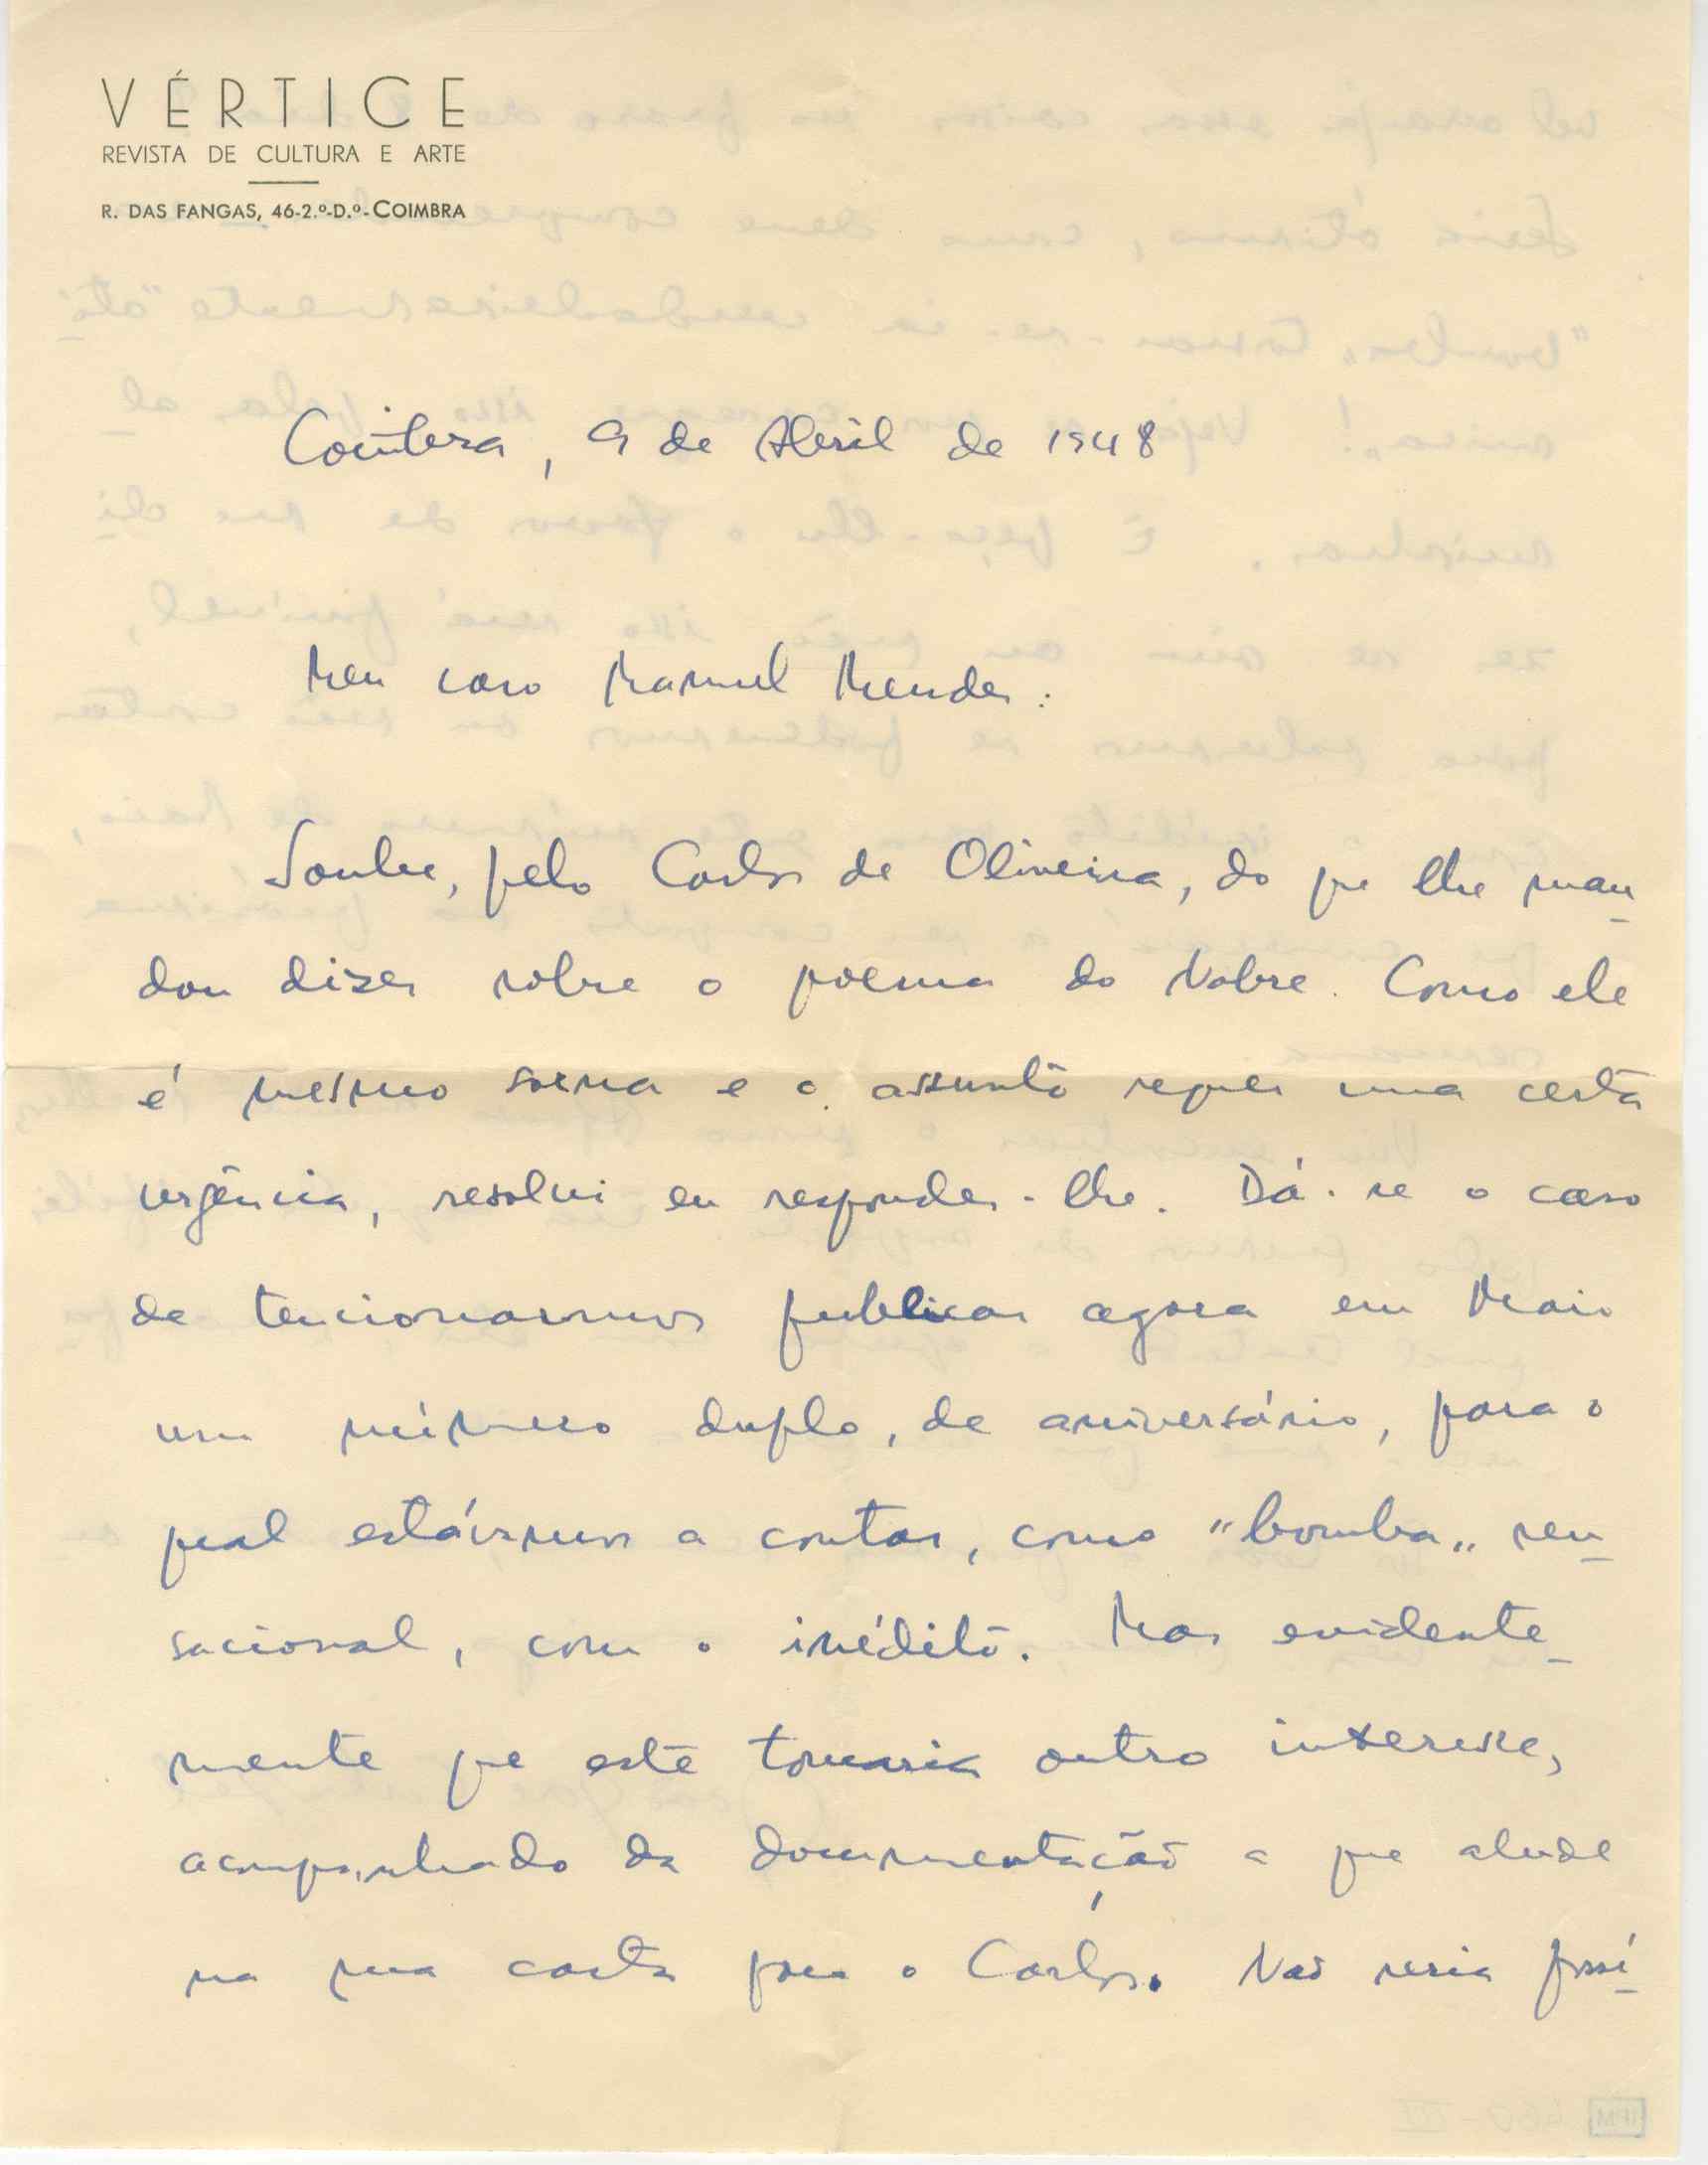 VÉRTICE
REVISTA DE CULTURA E ARTE
R. DAS FANGAS, 46-2.º-D.º-COIMBRA
Coimbra, 9 de Abril de 1948
Meu caro Manuel Mendes:
Soube, pelo Carlos de Oliveira, do que lhe man-
dou dizer sobre o poema do Nobre. Como ele
é mesmo sorna e o assunto requer uma certa
urgência, resolvi eu responder-lhe. Dá-se o caso
de tencionarmos publicar agora em Maio
um número duplo, de aniversário, para o
qual estávamos a contar, como "bomba" sen-
sacional, com o inédito. Mas evidente-
mente que este tomaria outro interesse,
acompanhado da documentação a que alude
na sua carta para o Carlos. Não seria possí-